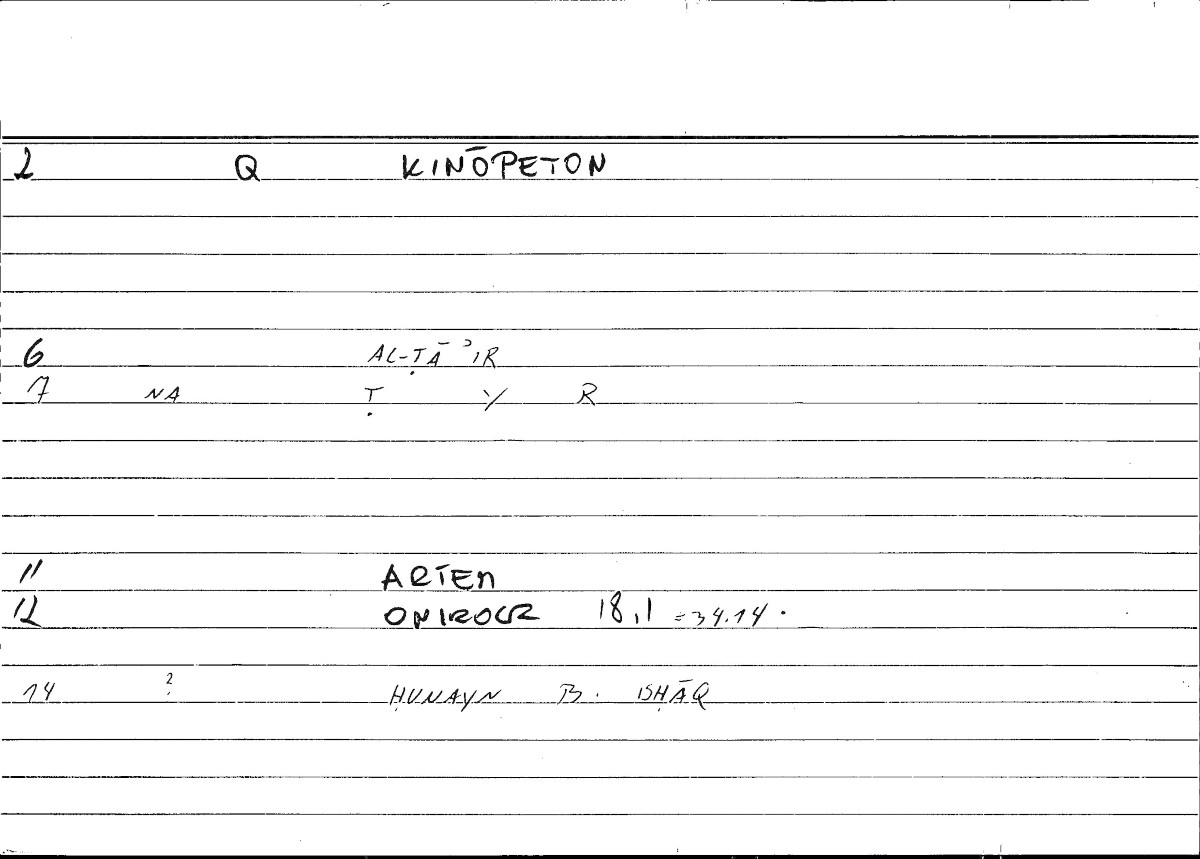 2 Q KINŌPETON
6 AL-ṬĀʾIR
7 NA Ṭ Y R
11 ARTEM
12 ONIROCR 18,1 =34.14.
14 ? ḤUNAYN B. ISḤĀQ